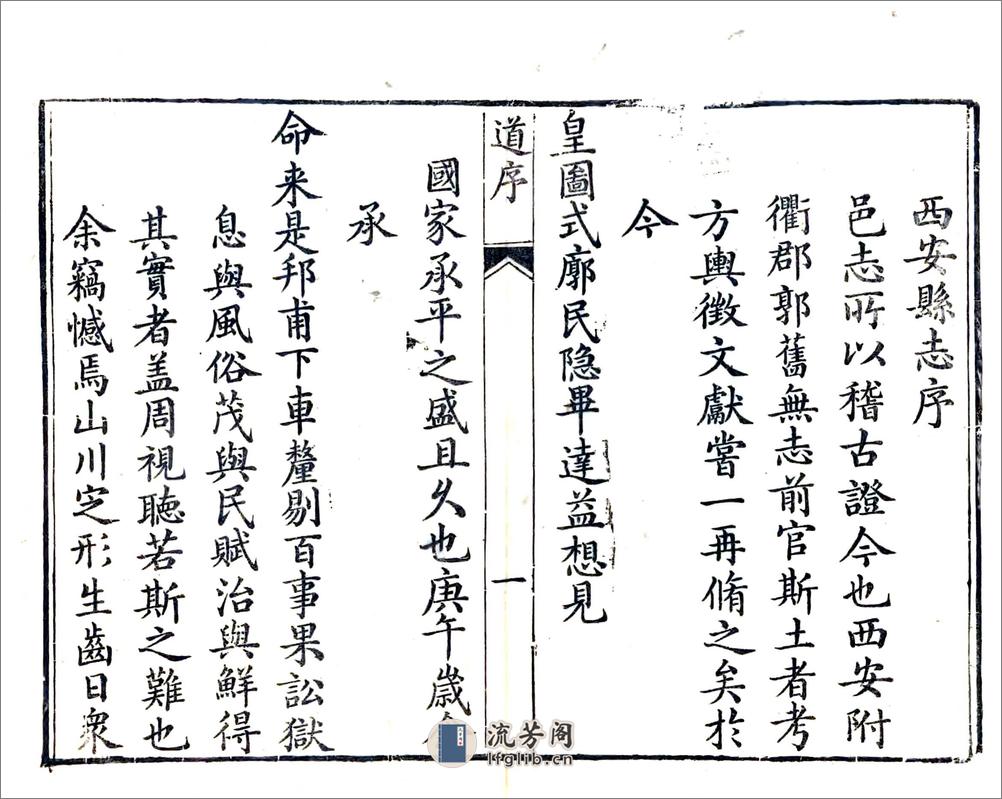 西安縣志序
邑志所以稽古證今也西安附
衢郡郭舊無志前官斯土者考
方輿徵文獻嘗一再脩之矣於
今
皇圖式廓民隐畢達益想見
道序
一
國家承平之盛且久也庚午歲
承
命来是邦甫下車釐剔百事果訟獄
息與風俗茂與民賦治與鮮得
其實者盖周視聽若斯之難也
余竊憾焉山川定形生齒日衆
流芳阁
lfglib.cn